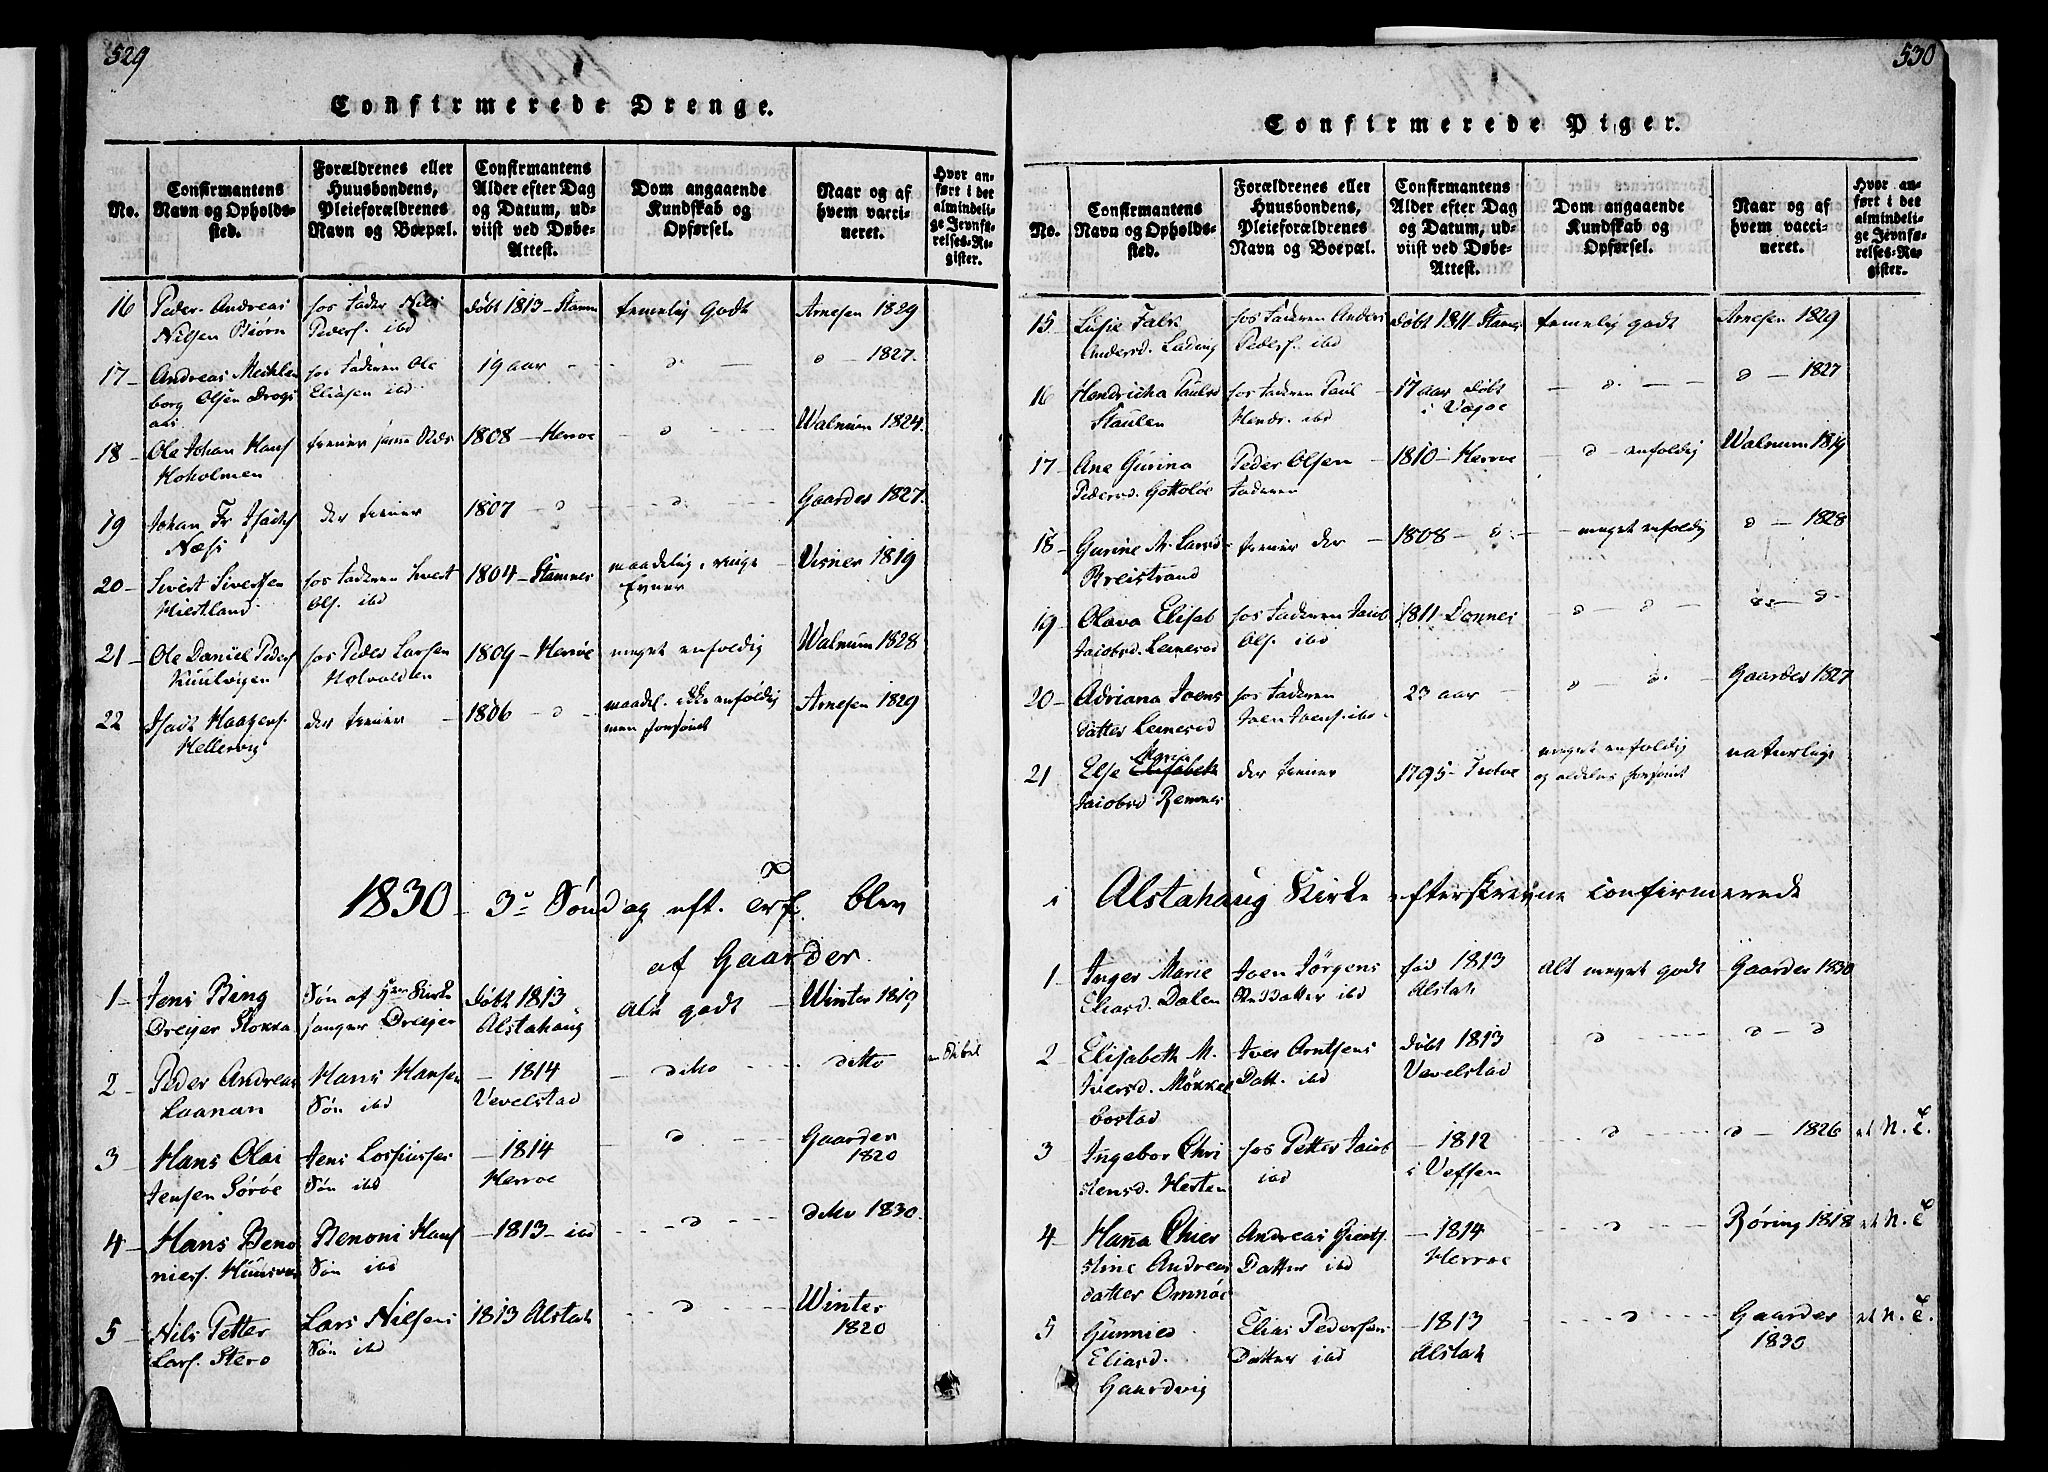 529
Confirmerede Drenge.
No.
Confirmantens
Navn og Opholds-
sted.
Forældrenes eller
Huusbondens,
Pleieforældrenes
Navn og Boepæl.
Confirmantens
Alder efter Dag
og Datum, ud-
viist ved Døbe-
Attest.
Dom angaaende
Kundskab og
Opførsel.
Naar og af
hvem vacci-
neret.
Hvor an-
ført i det
almindeli-
ge Jevnfø-
relses-Re-
gister.
16 Peder Andreas
Nilsen Biørn
hos Fader Nils
Peders. ibd
døbt 1813 - Stamn
temelig godt
Arnesen 1829
17 - Andreas Meklen
borg Olsen Drags
aas
hos Faderen Ole
Eliasen ibd
19 aar
d
d - 1827.
18 - Ole Johan Hans
Hoholmen
tiener
1808 - Herroe
d
Walnum 1824.
19 Johan Fr Isachs
Næss
der tiener
1807 - d
d
Gaarder 1827.
20 - Sivert Siversen
Hiestland
hos Faderen Sivert
Ols. ibd
1804 - Stamnes
maadelig, ringe
Evner
Visner 1819
21 - Ole Daniel Peders
hos Peder Larsen
1809 - Herrøe
meget enfoldig
Walnum 1828
22 Isach Haagens.
Hellesvig
der tiener
1806 - d -
maadel. ikke enfoldig
men forsømt
Arnesen 1829
1830 - 3e Søndag eft. blev
af Gaarder.
1 - Jens Bing
Dreyer Stokka
Søn af Hr Kirke
sanger Dreyer
døbt 1813
Alstahaug
Alt godt
Winter 1819
2 - Peder Andreas
Laanan
Hans Hansen
Søn ibd
- 1814
Vevelstad
ditto
ditto
3 - Hans Olai
Jensen Sørøe
Jens
Søn ibd
- 1814
Herroe
d
Gaarder
1820
4 - Hans Beno
nies.
Benoni Hans
Søn ibd
- 1813 - ibd
d
ditto 1830.
5 - Nils Petter
Lars. Stero
Lars Nilsens
Søn ibd
1813 Alstah
d
Winter
1820
530
Confirmerede Piger.
No.
Confirmantens
Navn og Opholds-
sted.
Forældrenes eller
Huusbondens,
Pleieforældrenes
Navn og Boepæl.
Confirmantens
Alder efter Dag
og Datum, ud-
viist ved Døbe-
Attest.
Dom angaaende
Kundskab og
Opførsel.
Naar og af
hvem vacci-
neret.
Hvor an-
ført i det
almindeli-
ge Jevnfø-
relses-Re-
gister.
15 Lusie Falk
Andersd. Ladvig
hos Faderen Anders
Peders. ibd
døbt 1811 Stamnes
temelig godt
Arnesen 1829
16 Hendricha Paulsd
Staulen
hos Faderen Paul
Henr. ibd
17 aar døbt
i Vægøe
- d -
d - 1827
17 - Ane Gurina
Pedersd.
Peder Olsen
Faderen
1810 - Herroe
- d - enfoldig
Walnum 1819
18 - Gurine M. Larsd
Breistrand
tiener der
1808 - d -
- meget enfoldig
d - 1828
19 Olava Elisab
Jacobsd. Leinesod
hos Faderen Jacob
Ols. ibd
1811 - Dønnes
d - d
d
20 - Adriana Joens
datter Leinesod
hos Faderen
Joen Joens. ibd
23 aar
d - d
Gaarder 1827
21 Else Maria
Jacobsd Remnes
der tiener
1795 -
meget enfoldig
og aldeles forsømt
naturlige
i Alstahaug Kirke efterskrevne confirmerede
1 - Inger Marie
Eliasd. Dalen
Joen Jørgens
Datter ibd
fød 1813
Alstah
Alt meget godt
Gaarder 1830
2 Elisabeth M.
Iversd. Møkkel
bostad
Iver Arntsens
Datt. ibd
døbt 1813
Vevelstad
d
d - d
3 Ingebor Chri
stensd. Hesten
hos Petter Jacob
ibd
- 1812
i Vefsen
d
d - 1826
et N. T.
4 - Hana Chier
stine Andreas
datter Omnøe
Andreas
Datter ibd
- 1814
Herroe
d
Røring 1818
et N. T
5 Gunnild
Eliasd.
Gaardvig
Elias Pedersens
Datter ibd
- 1813
Alstah
d
Gaarder
1830
et N. T.